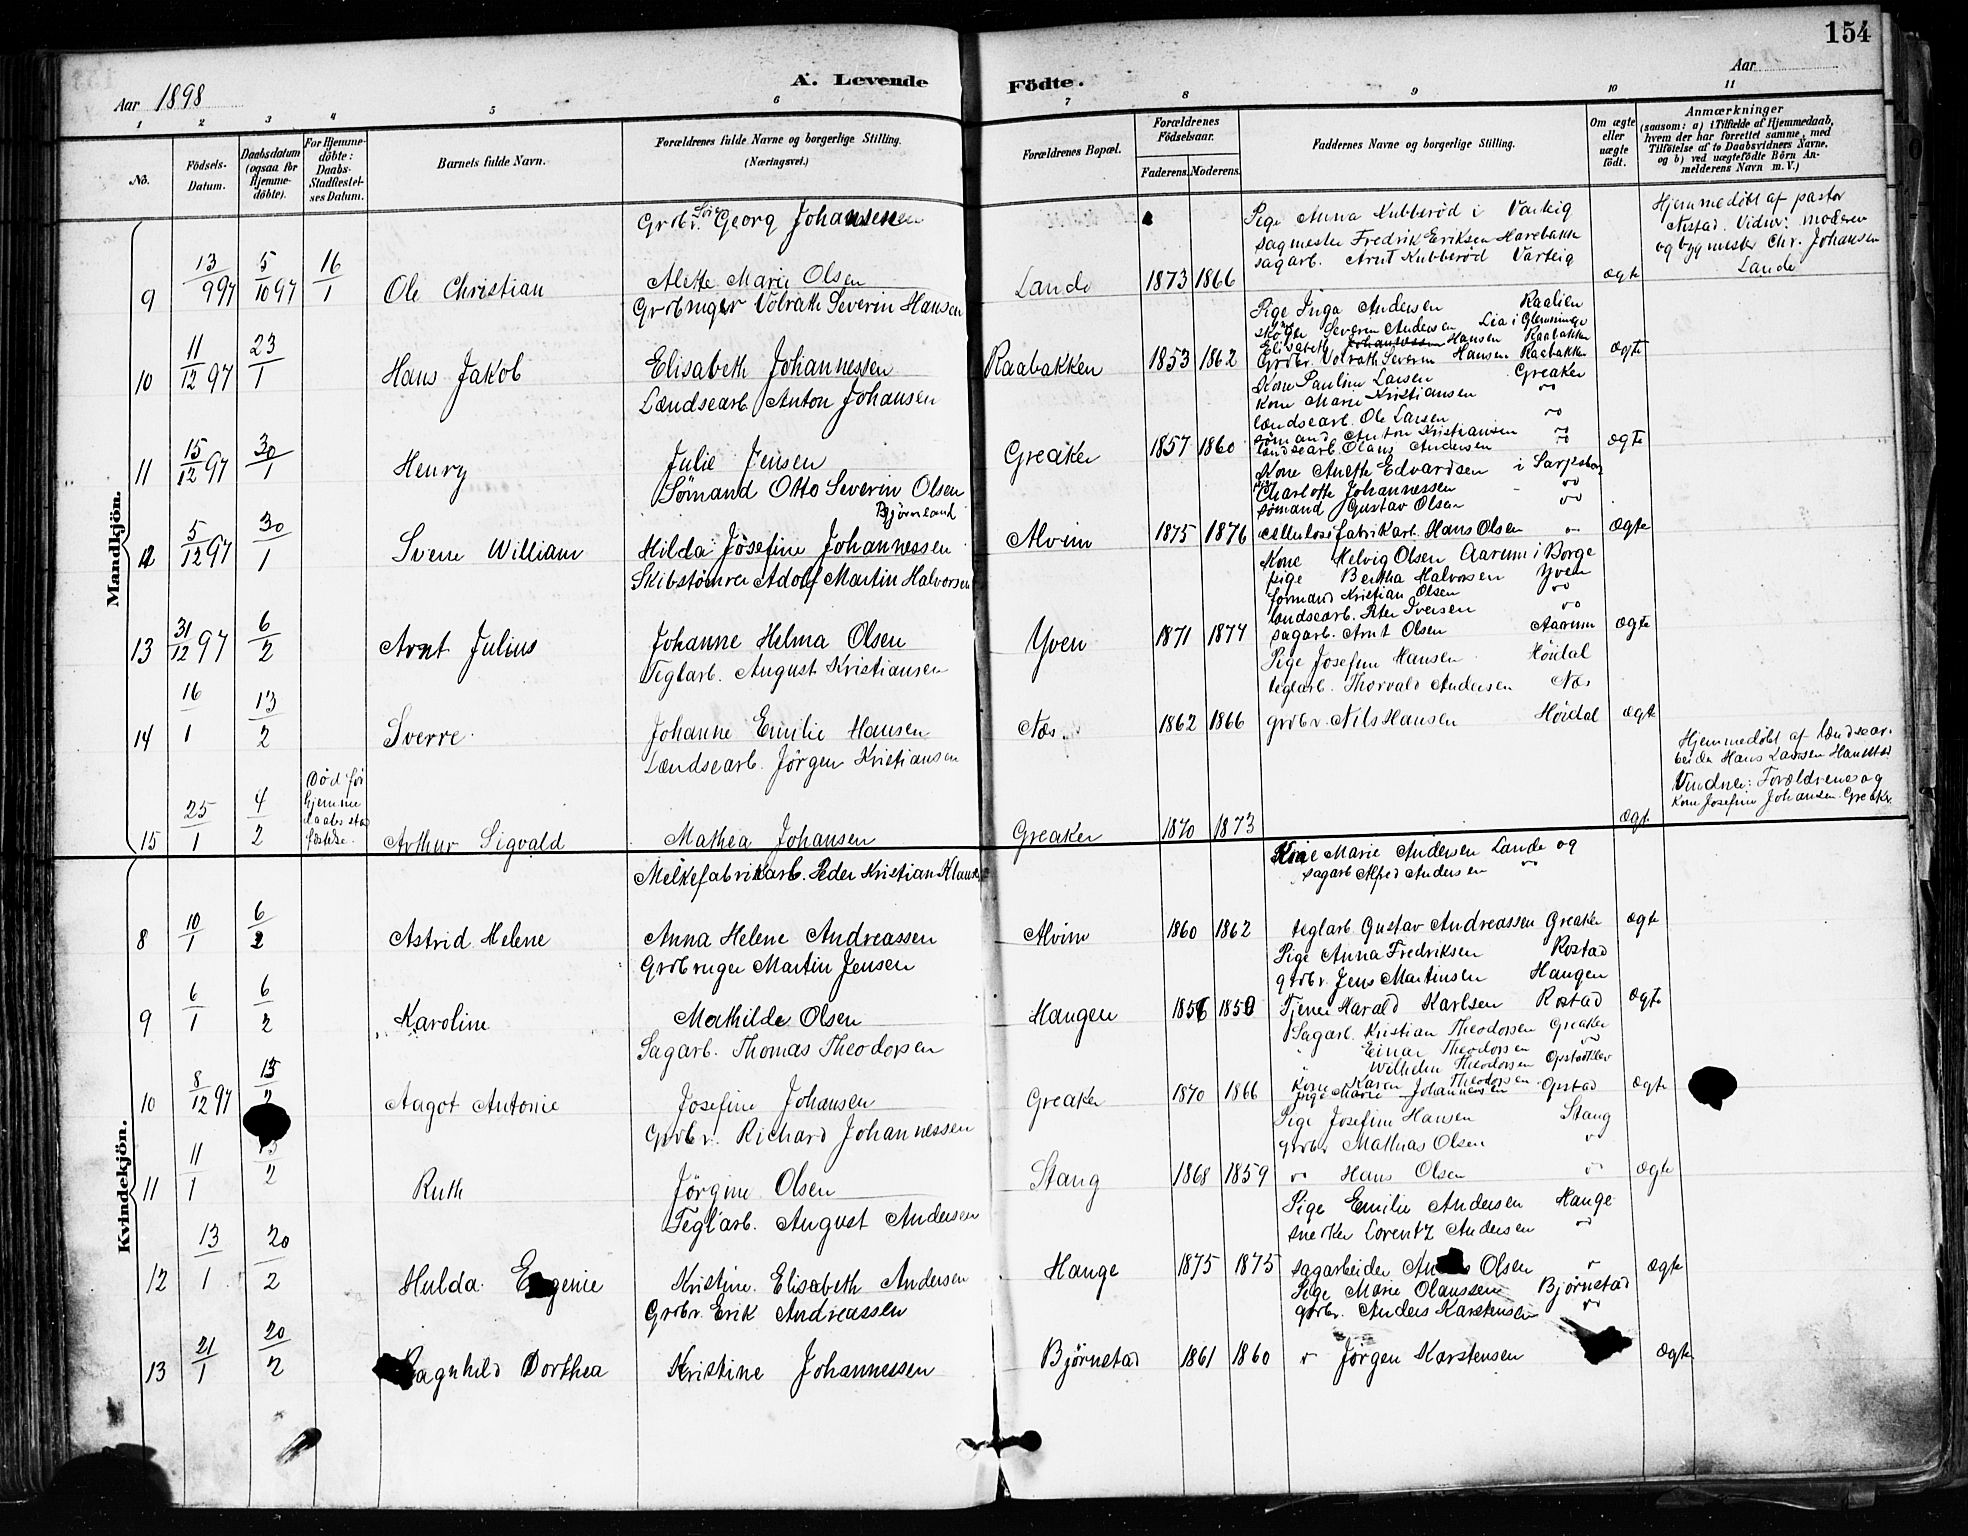 154
Aar 1898
A. Levende Fødte.
Aar
1 2 3 4 5 6 7 8 9 10 11
No.
Fødsels-Datum.
Daabsdatum (ogsaa for Hjemmedöbte).
For Hjemmedöbte: Daabs-Stadfæstelses Datum.
Barnets fulde Navn.
Forældrenes fulde Navne og borgerlige Stilling. (Næringsvei.)
Forældrenes Bopæl.
Forældrenes Födselsaar.
Faderens. Moderens.
Faddernes Navne og borgerlige Stilling.
Om ægte eller uægte födt.
Anmærkninger
(saasom: a) i Tilfælde af Hjemmedaab, hvem der har forrettet samme, med Tilföielse af to Daabsvidners Navne, og b) ved uægtefödte Börn Anmelderens Navn m. V.)
Mandkjön.
Grdbr. Georg Johansen
Pige Anna Kubberød i Varteig
sagmester Fredrik Eriksen Harebakk
sagarb. Arnt Kubberød Varteig
Hjemmedøbt af pastor
Nistad. Vidner: moderen
og bygmester Chr. Johansen
Lande
9 13/9 97 5/10 97 16/1 Ole Christian Alette Marie Olsen Lande 1873 1866 ægte
Grdbruger Volrath Severin Hansen
Pige Inga Andersen Raalien
Severin Andersen Lia i Glemminge
Elisabeth Hansen Raabakken
Grdbr. Volrath Severin Hansen Raabakken
10 11/12 97 23/1 Hans Jakob Elisabeth Johannessen Raabakken 1853 1862 ægte
Lændsearb. Anton Johansen
Kone Pauline Larsen Greaker
Kone Marie Kristiansen "
lændsearb. Ole Larsen "
sømand Anton Kristiansen "
lændsearb. Olaus Andersen "
11 15/12 97 30/1 Henry Julie Jensen Greaker 1857 1860 ægte
Sømand Otto Severin Olsen
Bjørnland
Kone Anette Edvardsen i Sarpsborg
Charlotte Johannessen "
sømand Gustav Olsen "
cellulosefabrikarb. Hans Olsen "
12 5/12 97 30/1 Sverre William Hilda Josefine Johannessen Alvim 1875 1876 ægte
Skibstømrer Adolf Martin Halvorsen
Kone Helvig Olsen Aarum i Borge
pige Bertha Halvorsen Yven
formand Kristian Olsen "
lændsearb. Peter Iversen "
sagarb. Arnt Olsen Aarum
13 31/12 97 6/2 Arnt Julius Johanne Helma Olsen Yven 1871 1874 ægte
Teglarb. August Kristiansen
Pige Josefine Hansen Høidal
teglarb. Thorvald Andersen Næs
grdbr. Nils Hansen Høidal
14 16/1 13/2 Sverre Johanne Emilie Hansen Næs 1862 1866 ægte
Lændsearb. Jørgen Kristiansen
Død før
hjemme
daabs stad
fæstelse.
Hjemmedøbt af lændsear-
beider Hans Larssen Hanestad
Vidner: Forældrene og
Kone Josefine Johansen Greaker
15 25/1 4/2 Arthur Sigvald Mathea Johansen Greaker 1870 1873 ægte
Kvindekjön.
Melkefabrikarb. Peder Kristian Hansen
Marie Andersen Lande og
sagarb Alfred Andersen "
teglarb. Gustav Andreassen Greaker
8 10/1 6/2 Astrid Helene Anna Helene Andreassen Alvim 1860 1862 ægte
Grdbruger Martin Jensen
Pige Anna Fredriksen Rostad
grdbr. Jens Martinsen Haugen
Tjener Harald Karlsen Rostad
9 6/1 6/2 Karoline Mathilde Olsen Haugen 1856 1850 ægte
Sagarb. Thomas Theodorsen
Sagarb. Kristian Theodorsen Greaker
" Einar Theodorsen "
" Wilhelm Theodorsen
Kone Karen Theodorsen
pige Marie Johannessen Opstad
10 8/12 97 13/2 Aagot Antonie Josefine Johansen Greaker 1870 1866 ægte
Grdbr. Richard Johannessen
Pige Josefine Hansen Stang
grdbr Mathias Olsen "
" Hans Olsen "
11 11/1 13/2 Ruth Jørgine Olsen Stang 1868 1859 ægte
Teglarb. August Andersen
Pige Emilie Andersen Hauge
snekker Lorentz Andersen "
sagarbeider Olsen "
12 13/1 20/2 Hulda Eugenie Kristine Elisabeth Andersen Hauge 1875 1875 ægte
Grdbr. Erik Andreassen
Pige Marie Olaussen Bjørnstad
grdbr. Anders Karstensen "
" Jørgen Karstensen
13 21/1 20/2 Ragnhild Dorthea Kristine Johannessen Bjørnstad 1861 1860 ægte